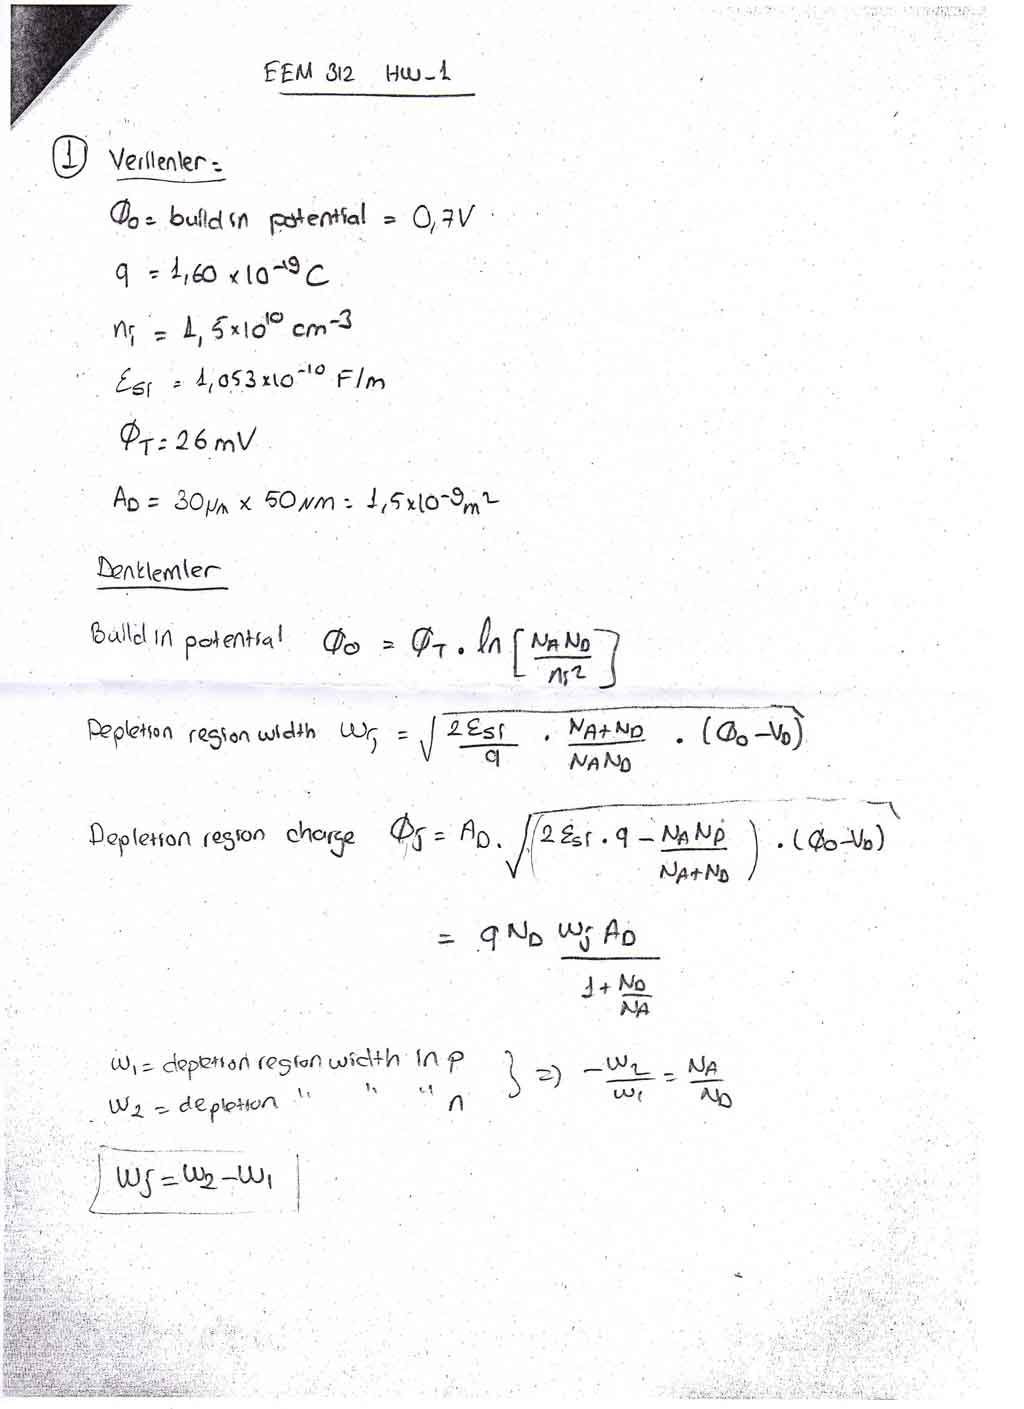 EEM 312 HW-1
1 Verilenler =
Φ₀ = build in potential = 0,7V
q = 1,60 x 10⁻¹⁹ C
nᵢ = 1,5x10¹⁰ cm⁻³
Ɛsi = 1,053x10⁻¹⁰ F/m
Φ_T = 26 mV
A_D = 30μm x 50μm = 1,5x10⁻⁹m²
Denklemler
Build in potential Φ₀ = Φ_T . ln [N_A N_D / nᵢ²]
Depletion region width Wj = √(2Ɛsi / q . (N_A + N_D) / (N_A N_D) . (Φ₀ - V_D))
Depletion region charge Φj = A_D . √((2Ɛsi . q - N_A N_D / (N_A + N_D)) . (Φ₀ - V_D))
= q N_D Wj A_D / (1 + N_D / N_A)
W₁ = depletion region width in p } => -W₂ / W₁ = N_A / N_D
W₂ = depletion " " " n
Wj = W₂ - W₁